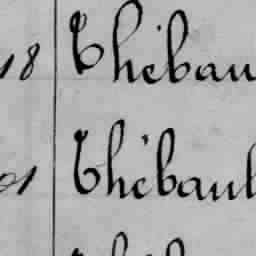 18 Thébau
01 Thébaul